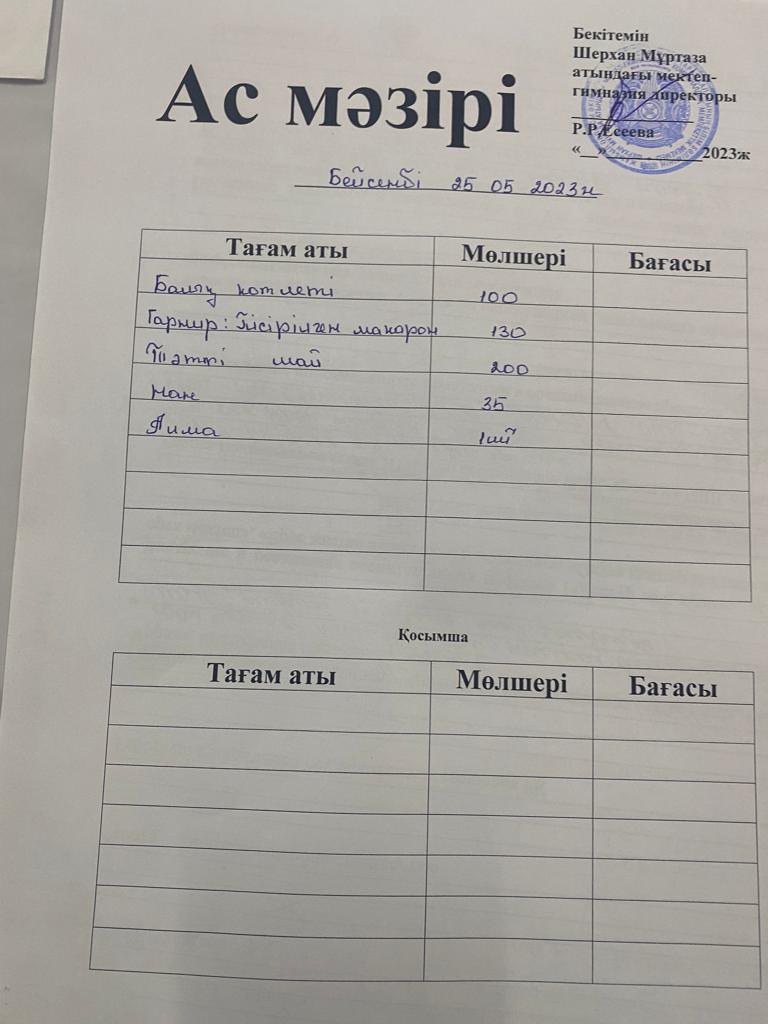 Бекітемін
Шерхан Мұртаза
атындағы мектеп-
гимназия директоры
Р.Р.Есеева
«__»____________2023ж
Ас мәзірі
Бейсенбі 25 05 2023ж
Тағам аты Мөлшері Бағасы
Балық котлеті 100
Гарнир: Пісірілген макарон 130
Тәтті шай 200
Нан 35
Алма 1шт
Қосымша
Тағам аты Мөлшері Бағасы